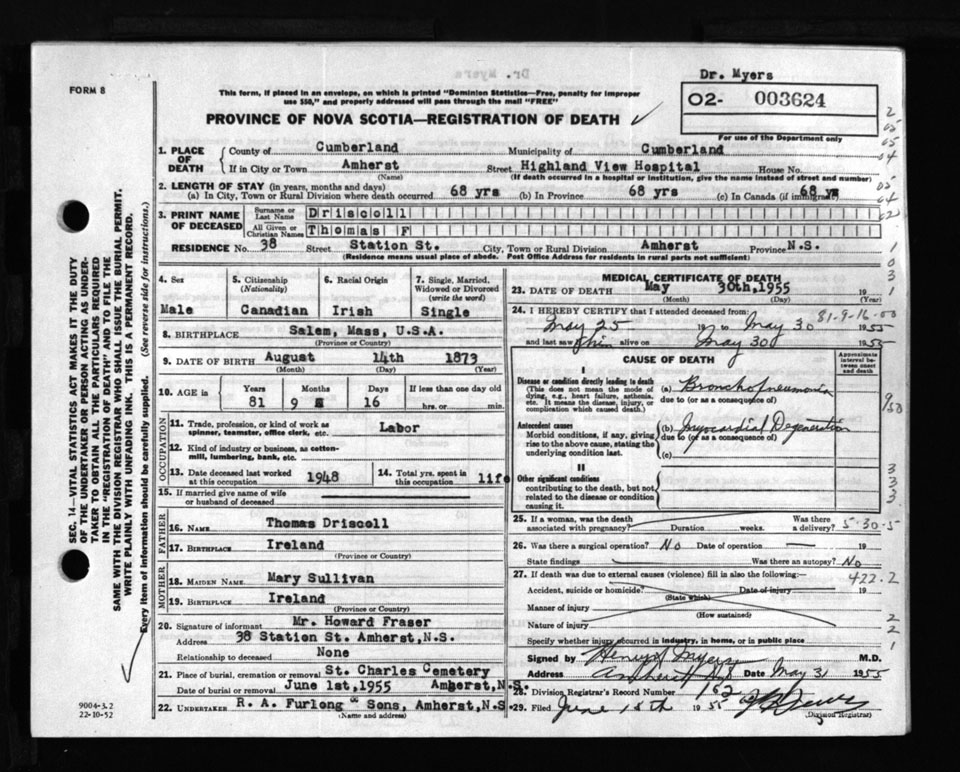 Dr. Myers
FORM 8
This form, if placed in an envelope, on which is printed "Dominion Statistics—Free, penalty for improper
use $50," and properly addressed will pass through the mail "FREE"
O2- 003624
For use of the Department only
PROVINCE OF NOVA SCOTIA—REGISTRATION OF DEATH
1. PLACE OF DEATH
County of Cumberland Municipality of Cumberland
If in City or Town Amherst Street Highland View Hospital House No.
(Name) (If death occurred in a hospital or institution, give the name instead of street and number)
2. LENGTH OF STAY (in years, months and days)
(a) In City, Town or Rural Division where death occurred 68 yrs (b) In Province 68 yrs (c) In Canada (if immigrant) 68 yrs
3. PRINT NAME OF DECEASED
Surname or Last Name Driscoll
All Given or Christian Names Thomas F
RESIDENCE No. 38 Street Station St. City, Town or Rural Division Amherst Province N.S.
(Residence means usual place of abode. Post Office Address for residents in rural parts not sufficient)
4. Sex Male
5. Citizenship (Nationality) Canadian
6. Racial Origin Irish
7. Single, Married, Widowed or Divorced (write the word) Single
8. BIRTHPLACE Salem, Mass, U.S.A.
(Province or Country)
9. DATE OF BIRTH August 14th 1873
(Month) (Day) (Year)
10. AGE in Years Months Days If less than one day old
81 9 16 hrs. or min.
OCCUPATION
11. Trade, profession, or kind of work as spinner, teamster, office clerk, etc. Labor
12. Kind of industry or business, as cotton-mill, lumbering, bank, etc.
13. Date deceased last worked at this occupation 1948
14. Total yrs. spent in this occupation life
15. If married give name of wife or husband of deceased
FATHER
16. NAME Thomas Driscoll
17. BIRTHPLACE Ireland
(Province or Country)
MOTHER
18. MAIDEN NAME Mary Sullivan
19. BIRTHPLACE Ireland
(Province or Country)
20. Signature of informant Mr. Howard Fraser
Address 38 Station St. Amherst, N.S.
Relationship to deceased None
21. Place of burial, cremation or removal St. Charles Cemetery
Date of burial or removal June 1st, 1955 Amherst, N.S.
22. UNDERTAKER R. A. Furlong & Sons, Amherst, N.S.
(Name and address)
MEDICAL CERTIFICATE OF DEATH
23. DATE OF DEATH May 30th, 1955 19
(Month) (Day) (Year)
24. I HEREBY CERTIFY that I attended deceased from 81-9-16-00
May 25 19 to May 30 1955
and last saw him alive on May 30 1955
CAUSE OF DEATH
Approximate interval between onset and death
I
Disease or condition directly leading to death
(This does not mean the mode of dying, e.g., heart failure, asthenia, etc. It means the disease, injury, or complication which caused death.)
(a) Bronchopneumonia
due to (or as a consequence of)
Antecedent causes
Morbid conditions, if any, giving rise to the above cause, stating the underlying condition last.
(b) Myocardial Degeneration
due to (or as a consequence of)
(c)
II
Other significant conditions
contributing to the death, but not related to the disease or condition causing it.
25. If a woman, was the death associated with pregnancy? Duration weeks. Was there a delivery? 5-30-5
26. Was there a surgical operation? No Date of operation 19
State findings Was there an autopsy? No
27. If death was due to external causes (violence) fill in also the following:— 422.2
Accident, suicide or homicide? Date of injury 19
(State which)
Manner of injury
(How sustained)
Nature of injury
Specify whether injury occurred in industry, in home, or in public place
Signed by Henry J Myers M.D.
Address Amherst N.S Date May 31 1955
28. Division Registrar's Record Number 152
29. Filed June 18th 1955
(Division Registrar)
SEC. 14—VITAL STATISTICS ACT MAKES IT THE DUTY
OF THE UNDERTAKER OR PERSON ACTING AS UNDER-
TAKER TO OBTAIN ALL THE PARTICULARS REQUIRED
IN THE "REGISTRATION OF DEATH" AND TO FILE THE
SAME WITH THE DIVISION REGISTRAR WHO SHALL ISSUE THE BURIAL PERMIT.
WRITE PLAINLY WITH UNFADING INK. THIS IS A PERMANENT RECORD.
Every item of information should be carefully supplied. (See reverse side for instructions.)
9004-3.2
22-10-52